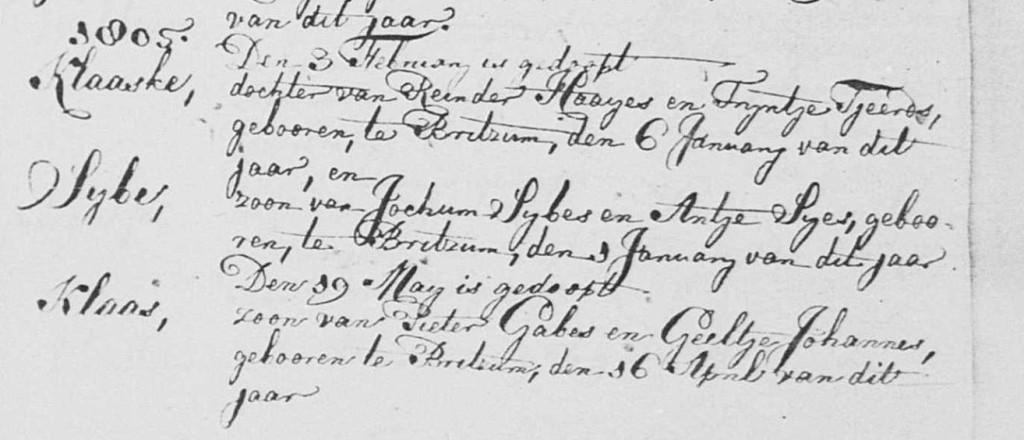 van dit jaar.
1805.
Den 3 February is gedoopt
Klaaske,
dochter van Reinder Haayes en Tryntje Tjeerds,
gebooren, te Britzum, den 6 January van dit
jaar, en
Sybe,
zoon van Jochum Sybes en Antje Syes, geboo-
ren, te Britzum, den 1 January van dit jaar
Den 19 May is gedoopt
Klaas,
zoon van Pieter Gabes en Geeltje Johannes,
gebooren te Britzum, den 16 April van dit
jaar